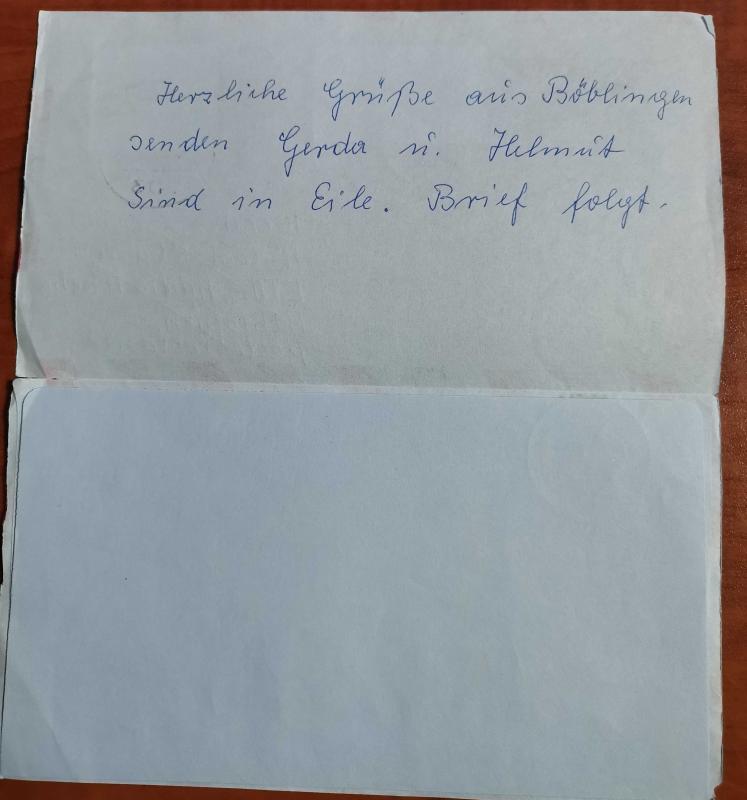 Herzliche Grüße aus Böblingen
senden Gerda u. Helmut
Sind in Eile. Brief folgt.